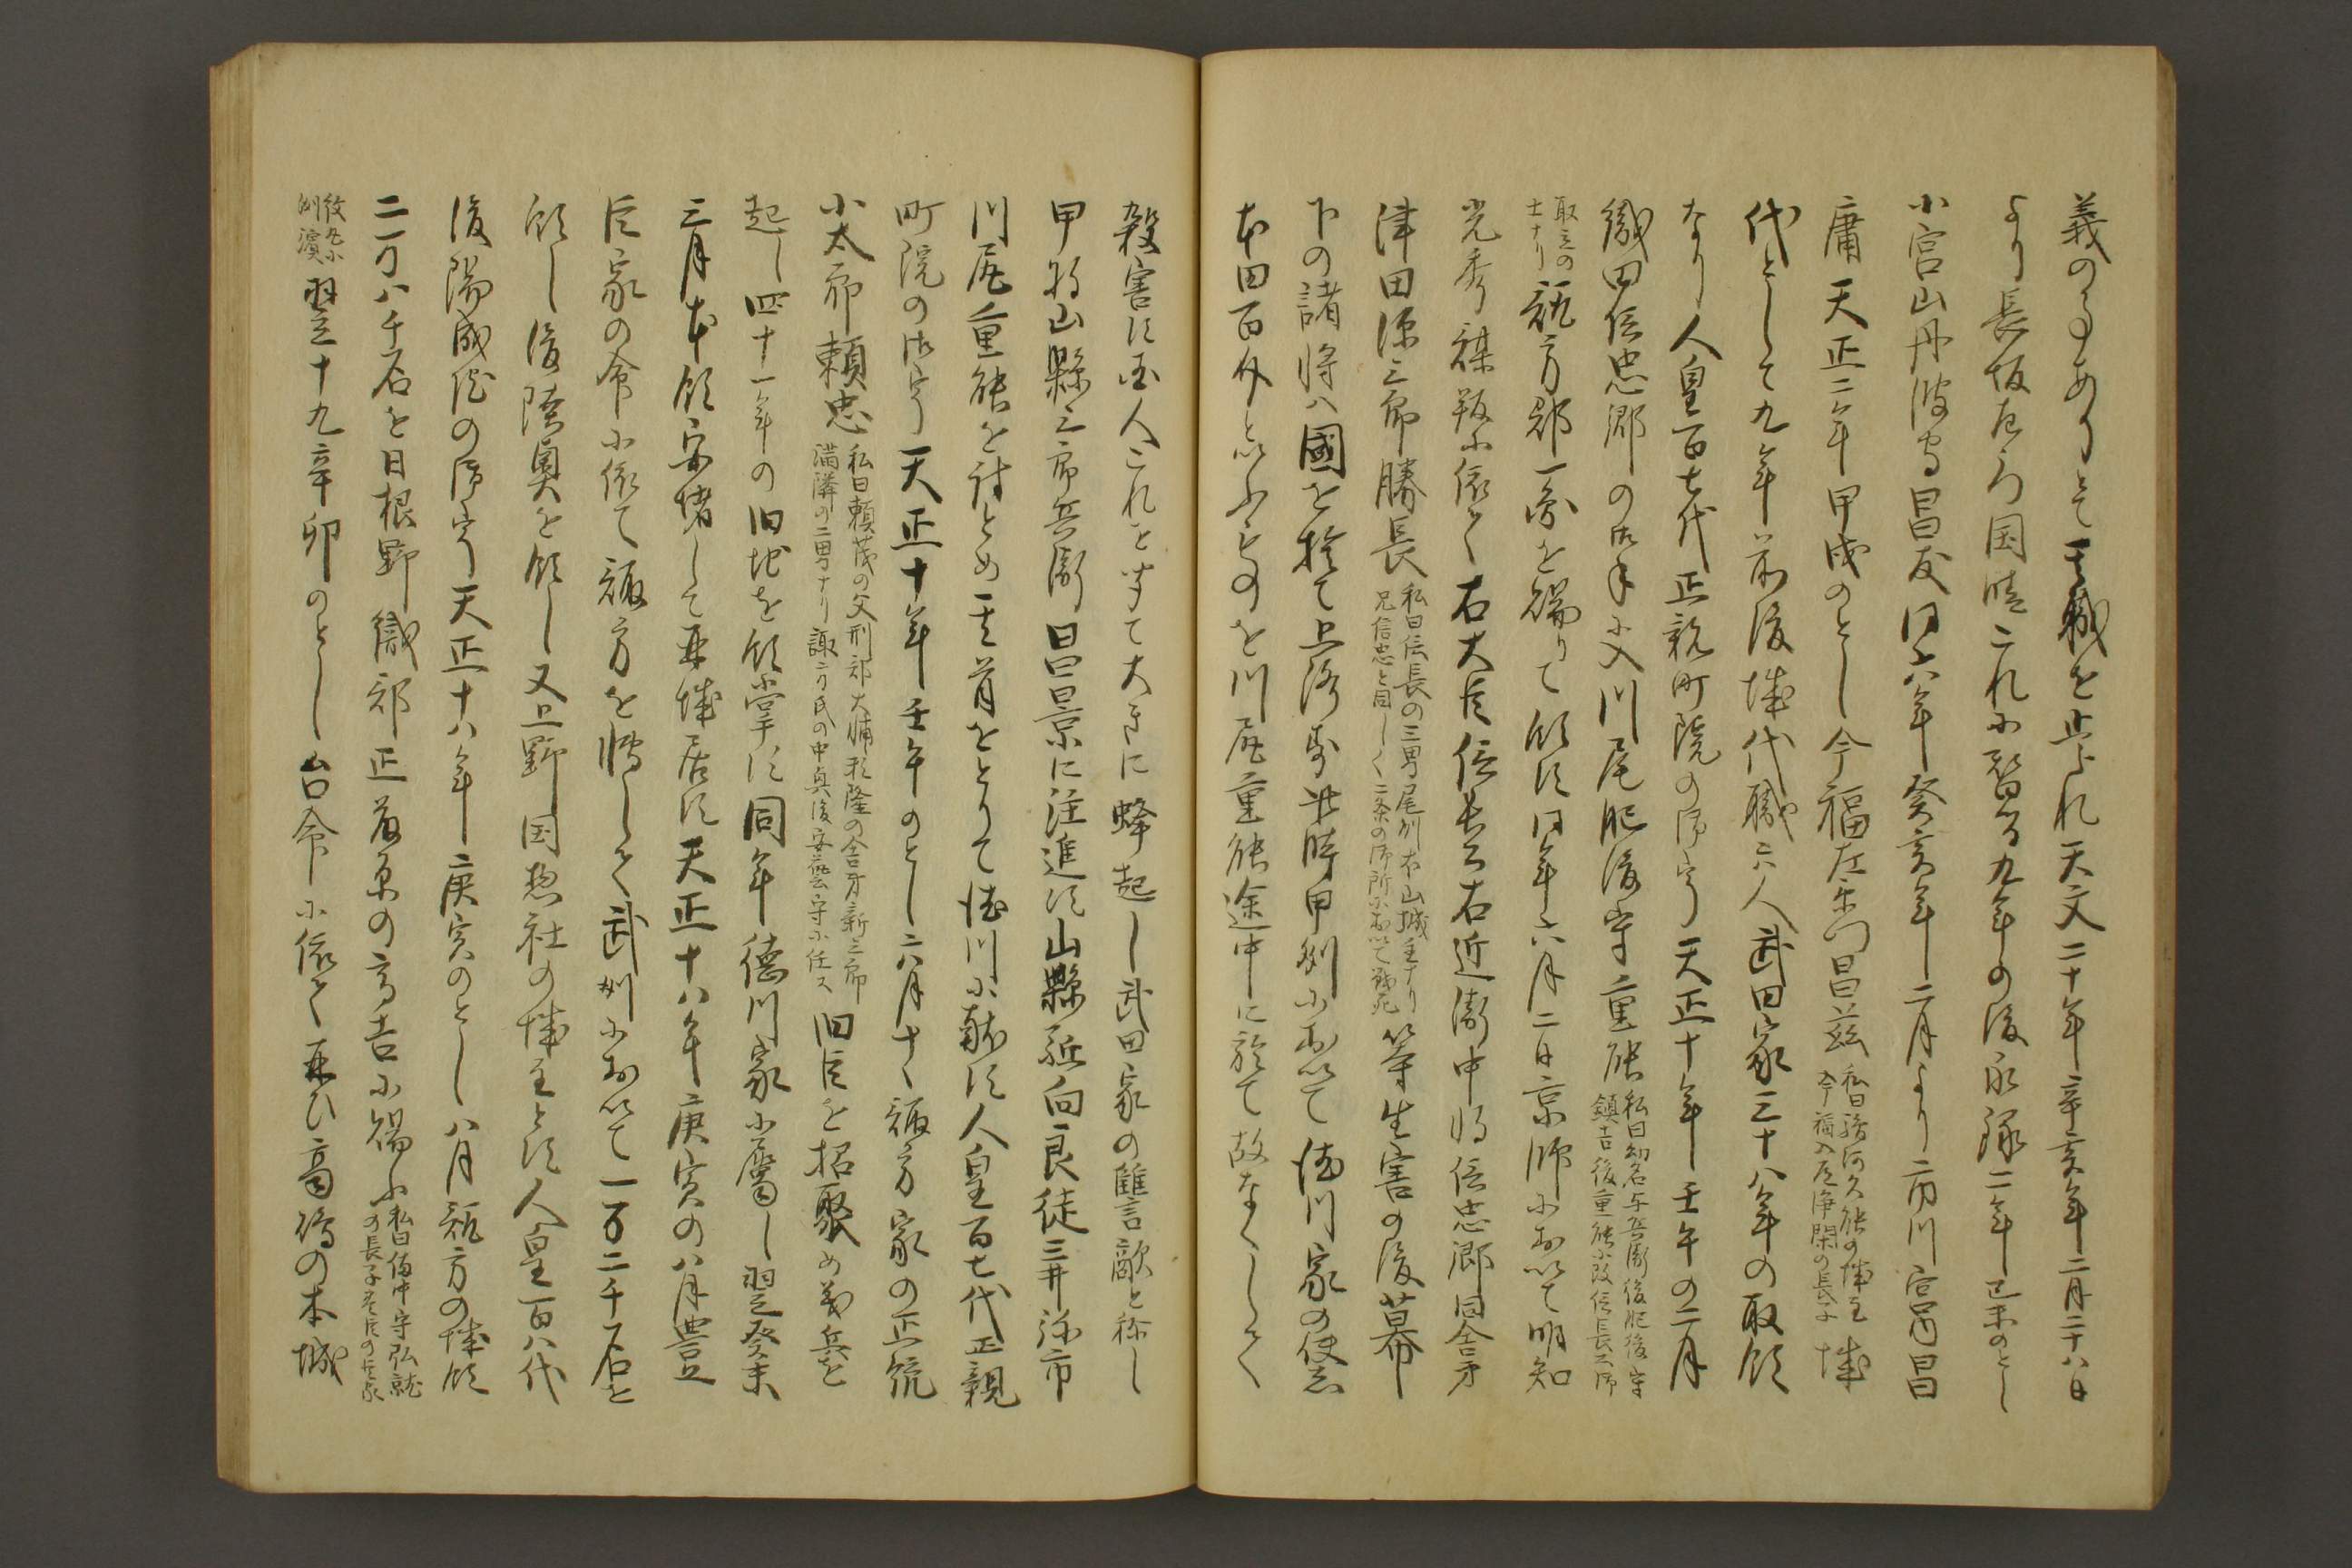 義の事ありとて其職を止られ天文二十年辛亥年二月二十八日
より長坂左馬国晴これに替る九年の後永禄二年己未のとし
小宮山丹波守昌友同六年癸亥年二月より市川宮内昌
庸天正二年甲戌のとし今福左衛門昌茲
私曰駿河久能の城主
今福入尾浄閑の長子
城
代として九年前後城代職六人武田家三十八年の取領
なり人皇百七代正親町院の御宇天正十年壬午の二月
織田信忠郷の手に入川尾肥後守重能
私曰幼名与兵衛後肥後守
鎮吉後重能に改信長公御
取立の
士ナリ
諏方郡一円を賜りて領す同年六月二日京師に於いて明知
光秀謀叛に依て右大臣信長公右近衛中将信忠郷同舎弟
津田源三郎勝長
私曰信長の三男尾州犬山城主ナリ
兄信忠と同しく二条の御所に於いて戦死
等生害の後幕
下の諸将ハ國を捨て上洛す此時甲刕に於いて徳川家の使者
本田百介といふものを川尾重能途中に於て故なくして
殺害す国人これを聞て大きに蜂起し武田家の讎言敵と称し
甲将山縣三郎兵衛昌景に注進す山縣組向良徒三井弥市
川尾重能を討とめ其首をとりて徳川に献す人皇百七代正親
町院の御宇天正十年壬午のとし六月十諏方家の正統
小太郎頼忠
私曰頼茂の父刑部大輔頼隆の舎弟新三郎
満隣の二男ナリ諏方氏の中興後安藝守に任ス
旧臣を招聚め義兵を
起し四十一年の旧地を領掌す同年徳川家に属し翌癸未
三月本領安堵して再城居す天正十八年庚寅の八月豊
臣家の命に依て諏方を転して武刕に於いて一万二千石を
領し後陸奥を領し又上野国惣社の城主とす人皇百八代
後陽成院の御宇天正十八年庚寅のとし八月諏方の城領
二万八千石を日根野織部正藤原の高吉に賜ふ
私曰備中守弘就
の長子秀吉の臣家
紋丸に
洲濱
翌三十九辛卯のとし台命に依て再ひ高嶋の本城